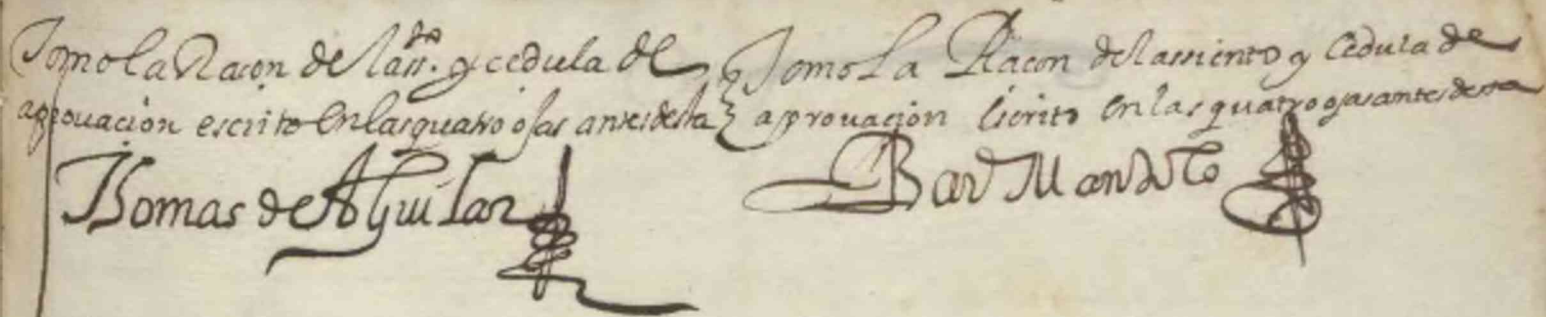 Tomo la Racon de lass.do y cedula de
aprouacion escrito en las quatro ojas antes desta
Thomas de Aguilar
Tomo la Racon del assiento y cedula de
aprouacion escrito en las quatro ojas antes desta